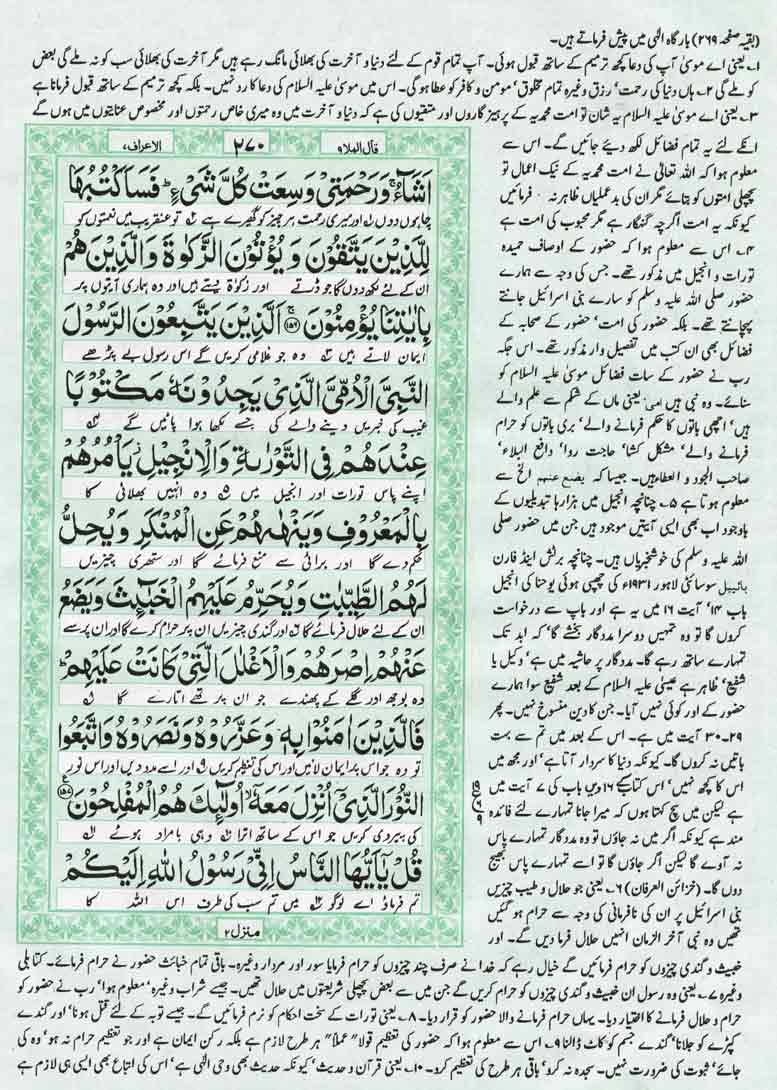 (بقیہ صفحہ ۲۶۹) بارگاہ الٰہی میں پیش فرماتے ہیں۔
۱۔ یعنی اے موسیٰ آپ کی دعا کچھ ترمیم کے ساتھ قبول ہوئی۔ آپ تمام قوم کے لئے دنیا و آخرت کی بھلائی مانگ رہے ہیں مگر آخرت کی بھلائی سب کو نہ ملے گی بعض
کو ملے گی ۲۔ ہاں دنیا کی رحمت' رزق وغیرہ تمام مخلوق' مومن و کافر کو عطا ہو گی۔ اس میں موسیٰ علیہ السلام کی دعا کا رد نہیں۔ بلکہ کچھ ترمیم کے ساتھ قبول فرمانا ہے
۳۔ یعنی اے موسیٰ علیہ السلام یہ شان تو امت محمدیہ کے پرہیز گاروں اور متقیوں کی ہے کہ دنیا و آخرت میں وہ میری خاص رحمتوں اور مخصوص عنایتوں میں ہوں گے
انکے لئے یہ تمام فضائل لکھ دیئے جائیں گے۔ اس سے
معلوم ہوا کہ اللہ تعالیٰ نے امت محمدیہ کے نیک اعمال تو
پچھلی امتوں کو بتائے مگر ان کی بدعملیاں ظاہر نہ فرمائیں
کیونکہ یہ امت اگرچہ گنہگار ہے مگر محبوب کی امت ہے
۴۔ اس سے معلوم ہوا کہ حضور کے اوصاف حمیدہ
تورات و انجیل میں مذکور تھے۔ جس کی وجہ سے ہمارے
حضور صلی اللہ علیہ وسلم کو سارے بنی اسرائیل جانتے
پہچانتے تھے۔ بلکہ حضور کی امت' حضور کے صحابہ کے
فضائل بھی ان کتب میں تفصیل وار مذکور تھے۔ اس جگہ
رب نے حضور کے سات فضائل موسیٰ علیہ السلام کو
سنائے۔ وہ نبی ہیں امی' یعنی ماں کے شکم سے علم والے
ہیں' اچھی باتوں کا حکم فرمانے والے' بری باتوں کو حرام
فرمانے والے' مشکل کشا' حاجت روا' دافع البلاء'
صاحب الجود و العطاء ہیں۔ جیسا کہ یضع عنہم الخ سے
معلوم ہوتا ہے ۵۔ چنانچہ انجیل میں ہزارہا تبدیلیوں کے
باوجود اب بھی ایسی آیتیں موجود ہیں جن میں حضور صلی
اللہ علیہ وسلم کی خوشخبریاں ہیں۔ چنانچہ برٹش اینڈ فارن
بائیبل سوسائٹی لاہور ۱۹۳۱ء کی چھپی ہوئی یوحنا کی انجیل
باب ۱۴' آیت ۱۶ میں یہ ہے اور باپ سے درخواست
کروں گا تو وہ تمہیں دوسرا مددگار بخشے گا' کہ ابد تک
تمہارے ساتھ رہے گا۔ مددگار پر حاشیہ میں ہے' وکیل یا
شفیع' ظاہر ہے عیسیٰ علیہ السلام کے بعد شفیع سوا ہمارے
حضور کے اور کوئی نہیں آیا۔ جن کا دین منسوخ نہیں۔ پھر
۲۹۔ ۳۰ آیت میں ہے۔ اس کے بعد میں تم سے بہت
باتیں نہ کروں گا۔ کیونکہ دنیا کا سردار آتا ہے' اور مجھ میں
اس کا کچھ نہیں' اس کتاب کے ۱۶ ویں باب کی ۷ آیت میں
ہے لیکن میں سچ کہتا ہوں کہ میرا جانا تمہارے لئے فائدہ
مند ہے کیونکہ اگر میں نہ جاؤں تو وہ مددگار تمہارے پاس
نہ آوے گا لیکن اگر جاؤں گا تو اسے تمہارے پاس بھیج
دوں گا۔ (خزائن العرفان) ۶۔ یعنی جو حلال و طیب چیزیں
بنی اسرائیل پر ان کی نافرمانی کی وجہ سے حرام ہو گئیں
تھیں وہ نبی آخر الزمان انہیں حلال فرما دیں گے۔ اور
قال الملاو ۹
۲۷۰
الاعراف ۷
اَشَآءُ ۚ وَرَحْمَتِیْ وَسِعَتْ كُلَّ شَیْءٍ ؕ فَسَاَكْتُبُهَا
چاہوں دوں اور میری رحمت ہر چیز کو گھیرے ہے تو عنقریب میں نعمتوں کو
لِلَّذِیْنَ یَتَّقُوْنَ وَیُؤْتُوْنَ الزَّكٰوةَ وَالَّذِیْنَ هُمْ
ان کے لئے لکھ دوں گا جو ڈرتے اور زکوٰۃ دیتے ہیں اور وہ ہماری آیتوں پر
بِاٰیٰتِنَا یُؤْمِنُوْنَ ۚ ﴿۱۵۶﴾ اَلَّذِیْنَ یَتَّبِعُوْنَ الرَّسُوْلَ
ایمان لاتے ہیں وہ جو غلامی کریں گے اس رسول بے پڑھے
النَّبِیَّ الْاُمِّیَّ الَّذِیْ یَجِدُوْنَهٗ مَكْتُوْبًا
غیب کی خبریں دینے والے کی جسے لکھا ہوا پائیں گے
عِنْدَهُمْ فِی التَّوْرٰىةِ وَالْاِنْجِیْلِ ؗ یَاْمُرُهُمْ
اپنے پاس تورات اور انجیل میں وہ انہیں بھلائی کا
بِالْمَعْرُوْفِ وَیَنْهٰىهُمْ عَنِ الْمُنْكَرِ وَیُحِلُّ
حکم دے گا اور برائی سے منع فرمائے گا اور ستھری چیزیں
لَهُمُ الطَّیِّبٰتِ وَیُحَرِّمُ عَلَیْهِمُ الْخَبٰٓىِٕثَ وَیَضَعُ
ان کے لئے حلال فرمائے گا اور گندی چیزیں ان پر حرام کرے گا اور ان پر سے
عَنْهُمْ اِصْرَهُمْ وَالْاَغْلٰلَ الَّتِیْ كَانَتْ عَلَیْهِمْ ؕ
وہ بوجھ اور گلے کے پھندے جو ان پر تھے اتارے گا
فَالَّذِیْنَ اٰمَنُوْا بِهٖ وَعَزَّرُوْهُ وَنَصَرُوْهُ وَاتَّبَعُوا
تو وہ جو اس پر ایمان لائیں اور اس کی تعظیم کریں اور اسے مدد دیں اور اس نور
النُّوْرَ الَّذِیْۤ اُنْزِلَ مَعَهٗۤ ۙ اُولٰٓىِٕكَ هُمُ الْمُفْلِحُوْنَ ﴿۱۵۷﴾
کی پیروی کریں جو اس کے ساتھ اترا وہی بامراد ہوئے
قُلْ یٰۤاَیُّهَا النَّاسُ اِنِّیْ رَسُوْلُ اللّٰهِ اِلَیْكُمْ
تم فرماؤ اے لوگو میں تم سب کی طرف اس اللہ کا
منزل ۲
خبیث و گندی چیزوں کو حرام فرمائیں گے خیال رہے کہ خدا نے صرف چند چیزوں کو حرام فرمایا سور اور مردار وغیرہ۔ باقی تمام خبائث حضور نے حرام فرمائے۔ کتا بلی
وغیرہ ۷۔ یعنی وہ رسول ان خبیث و گندی چیزوں کو حرام کریں گے جن میں سے بعض پچھلی شریعتوں میں حلال تھیں۔ جیسے شراب وغیرہ' معلوم ہوا' رب نے حضور کو
حرام و حلال فرمانے کا اختیار دیا۔ یہاں حرام فرمانے والا حضور کو قرار دیا۔ ۸۔ یعنی تورات کے سخت احکام کو نرم فرمائیں گے۔ جیسے توبہ کے لئے قتل ہونا' اور گندے
کپڑے کو جلانا' گندے جسم کو کاٹ ڈالنا ۹۔ اس سے معلوم ہوا کہ حضور کی تعظیم قولاً' عملاً' ہر طرح لازم ہے بلکہ رکن ایمان ہے اور جو تعظیم حرام نہ ہو' وہ کی
جائے' ثبوت کی ضرورت نہیں۔ سجدہ نہ کرو' باقی ہر طرح کی تعظیم کرو۔ ۱۰۔ یعنی قرآن و حدیث' کیونکہ حدیث بھی وحی الٰہی ہے' اس کی اتباع بھی ایسی ہی لازم ہے